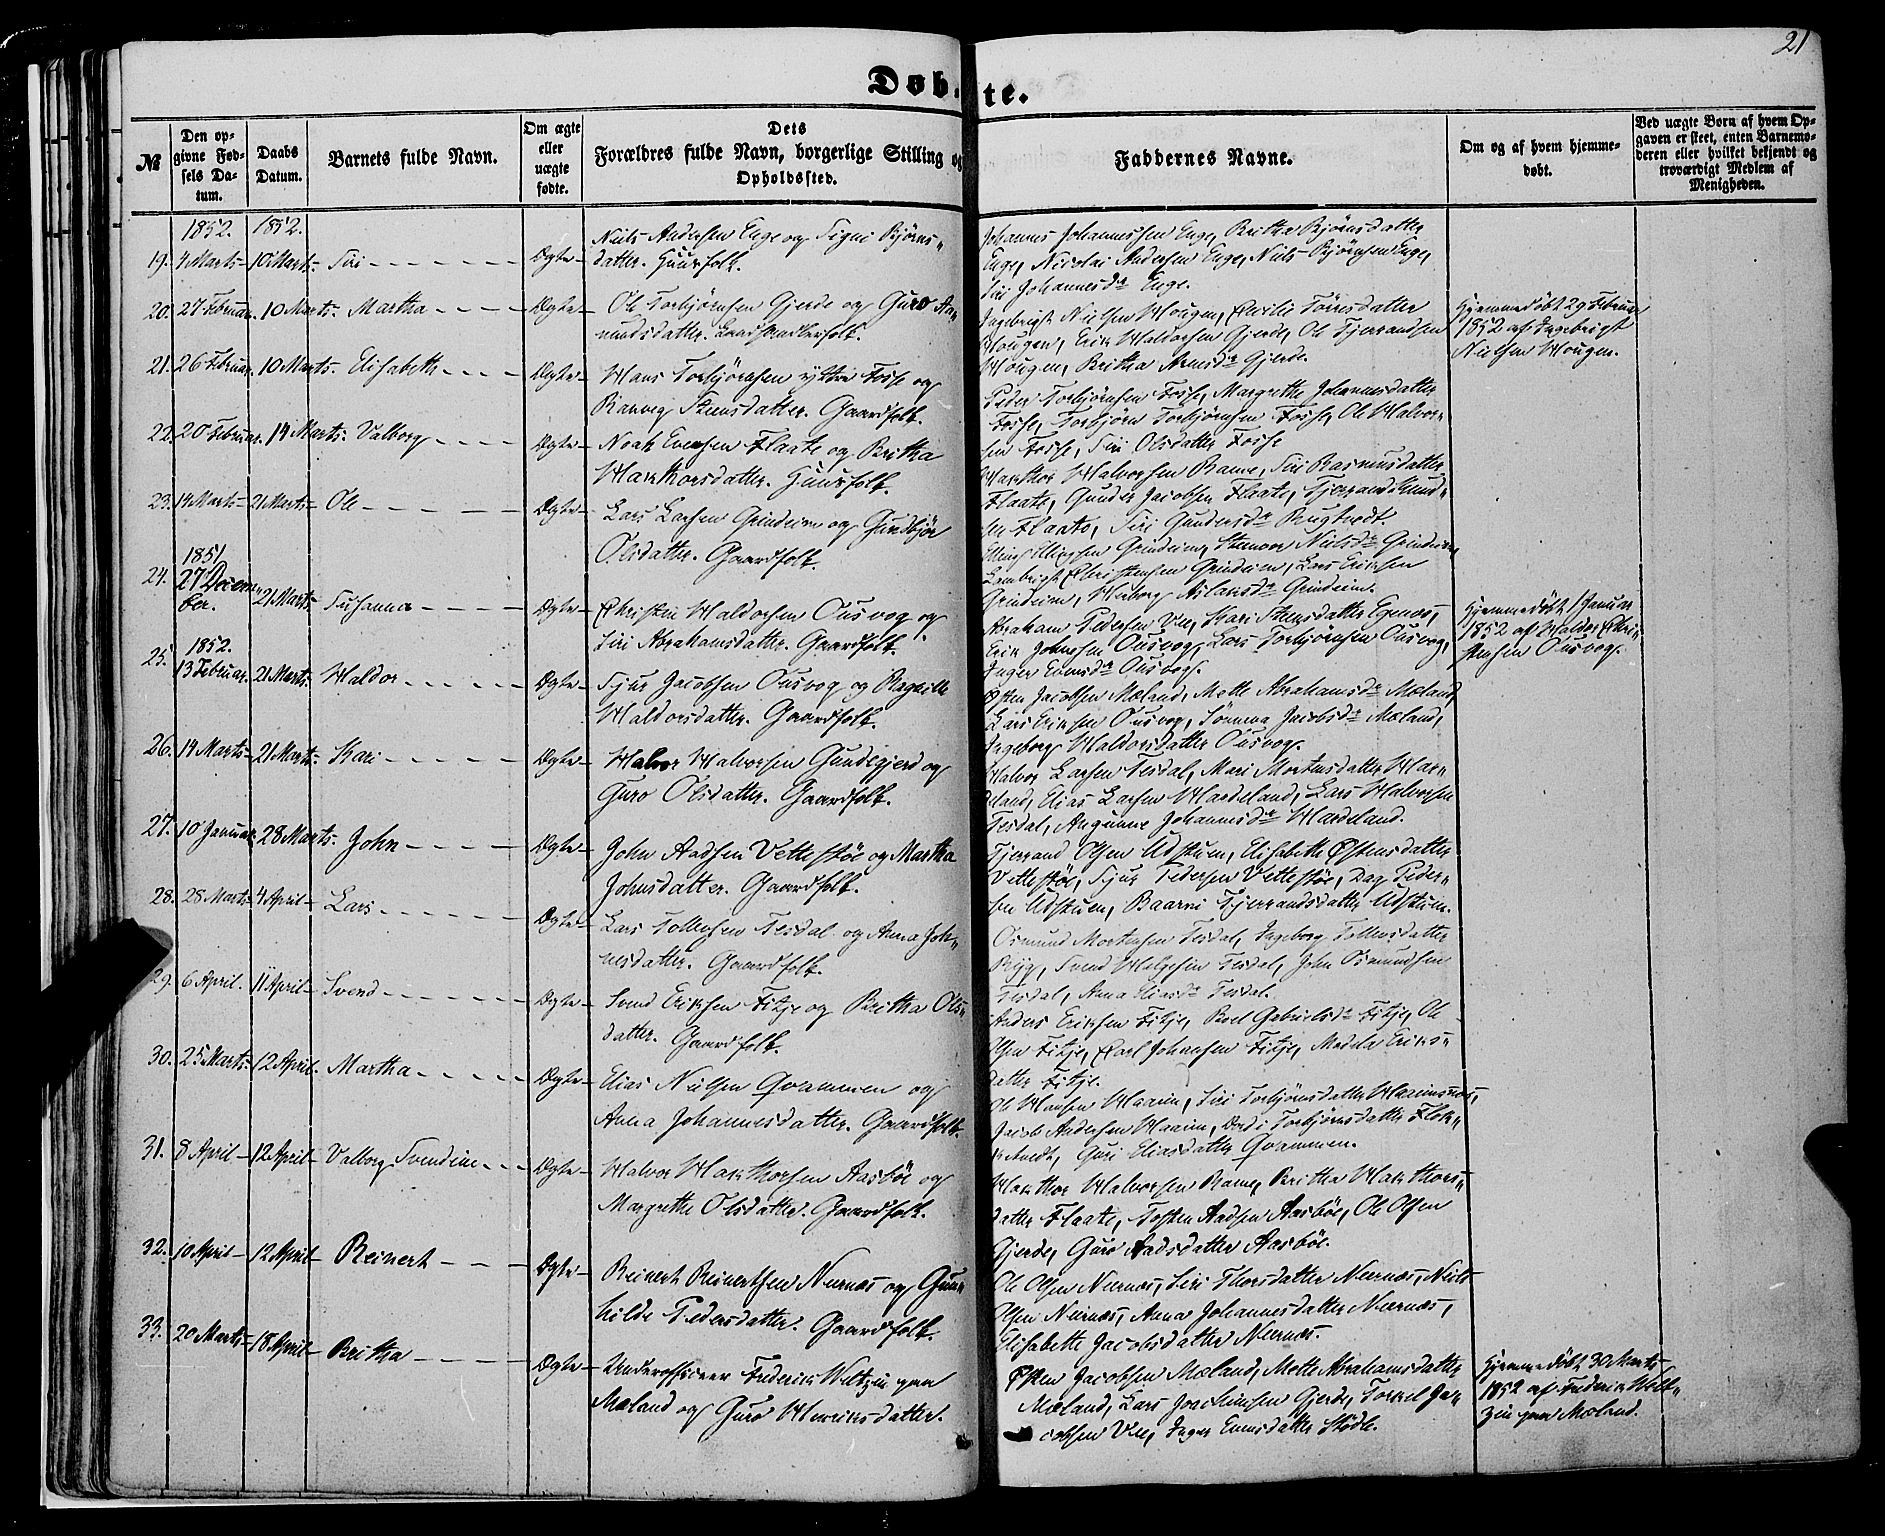 21
Døbte.
№
Den opgivne Fødsels Datum.
Daabs Datum.
Barnets fulde Navn.
Om ægte eller uægte fødte.
Dets Forældres fulde Navn, borgerlige Stilling og Opholdssted.
Faddernes Navne.
Om og af hvem hjemmedøbt.
Ved uægte Børn af hvem Opgaven er skeet, enten Barnemoderen eller hvilket bekjendt og troværdigt Medlem af Menigheden.
1852. 1852.
19. 4 Marts 10 Marts Siri Ægte
Niels Andersen Enge og Signi Bjørns-
datter. Huusfolk.
Johannes Johannessen Enge, Britha Bjørnsdatter
Enge, Nicolai Andersen Enge, Niels Bjørnsen Enge,
Siri Johannesdr Enge.
20. 27 Februar. 10 Marts. Martha Ægte
Ole Torbjørnsen Gjerde og Guro Aa-
mundsdatter.
Ingebrigt Nielsen Hougen, Tønesdatter
Hougen, Erik Haldorsen Gjerde, Ole Tjerrandsen
Hougen, Britha Arnesdr Gjerde.
Hjemmedøbt 29 Februar
1852 af Ingebrigt
Nielsen Hougen.
21. 26 Februar. 10 Marts. Elisabeth Ægte
Hans Torbjørnsen ytre Fosse og
Ranveig Steensdatter. Gaardfolk.
Peder Torbjørnsen Fosse, Margrethe Johannesdatter
Fosse, Torbjørn Torbjørnsen Fosse, Ole Halvor-
sen Fosse, Siri Olsdatter Fosse
22. 20 Februar. 14 Marts. Valborg Ægte
Noak Evensen Flaate og Britha
Hakthorsdatter. Huusfolk.
Hakthor Halvorsen Rame, Siri Rasmusdatter
Flaate, Gunder Jacobsen Flaate, Tjerrand Knud-
sen Flaate, Siri Gundersdr
23. 14 Marts 21 Marts Ole Ægte
Lars Larsen Grindeim og Gundbjør
Olsdatter. Gaardfolk.
Elling Ellingsen Grindeim, Nielsdr Grindeim,
Lambrigt Christensen Grindeim, Lars Eriksen
Grindeim, Aslansdr Grindeim.
1851.
24. 27 Decem-
ber. 21 Marts Susanna Ægte
Christen Haldorsen Ousvog og
Siri Abrahamsdatter. Gaardfolk.
Abraham Pedersen Vee, Kari Steensdatter Egenes,
Erik Johnsen Ousvog, Lars Torbjørnsen Ousvog,
Inger Evensdr Ousvog.
Hjemmedøbt 1 Januar
1852 af Haldor Chri-
stensen Ousvog.
1852.
25. 13 Februar. 21 Marts. Haldor Ægte
Sjur Jacobsen Ousvog og Ragnilde
Haldorsdatter. Gaardfolk.
Østen Jacobsen Mæland, Mette Abrahamsdr Mæland,
Lars Eriksen Ousvog, Sønneva Jacobsdr Mæland,
Ingeborg Haldorsdatter Ousvog.
26. 14 Marts 21 Marts. Kari Ægte
Halvor Halvorsen Gundegjerd og
Guro Olsdatter. Gaardfolk.
Halvor Larsen Tesdal, Mari Mortensdatter Har-
deland, Elias Larsen Hardeland, Lars Halvorsen
Tesdal, Angunne Johannesdr Hardeland.
27. 10 Januar 28 Marts. John Ægte
John Aadsen Vettestøe og Martha
Johnsdatter. Gaardfolk.
Tjerrand Olsen Udstuen, Elisabeth Østensdatter
Vettestøe, Sjur Pedersen Vettestøe, Dag Peder-
sen Udstuen, Baarni Tjerrandsdatter Udstuen.
28. 28 Marts 4 April Lars Ægte
Lars Tollefsen Tesdal og Anna Joh-
nesdatter. Gaardfolk.
Osmund Mortensen Tesdal, Ingeborg Tollevsdatter
Ryg, Svend Helgesen Tesdal, John Osmundsen
Tesdal, Anna Eliasdr Tesdal.
29. 6 April. 11 April Svend Ægte
Svend Eriksen Fitje og Britha Ols-
datter. Gaardfolk.
Anders Eriksen Fitje, Boel Gabrielsdr Fitje, Ole
Olsen Fitje, Carl Johansen Fitje, Madela Eriks-
datter Fitje.
30. 25 Marts 12 April. Martha Ægte
Elias Nielsen Qvammen og
Anna Johannesdatter. Gaardfolk.
Ole Hansen Haaim, Siri Torbjørnsdatter
Jacob Andersen Haaim, Torbjørnsdatter Flok-
Guri Eliasdatter Qvammen.
31. 8 April 12 April Valborg Svendine Ægte
Halvor Hakthorsen Aasbøe og
Margrethe Olsdatter. Gaardfolk.
Hakthor Halvorsen Rame, Britha Hakthors-
datter Flaate, Torsten Aadsen Aasbøe, Ole Olsen
Gjerde, Guro Aadsdatter Aasbøe.
32. 10 April 12 April Reinert Ægte
Reinert Reinertsen Neernæs og Gun-
hilde Pedersdatter. Gaardfolk.
Ole Olsen Neernæs, Siri Thorsdatter Neernæs, Niels
Olsen Neernæs, Anna Johannesdatter Neernæs,
Elisabeth Jacobsdatter Neernæs.
33. 20 Marts 18 April Britha Ægte
Underofficeer Frederik Weltzin paa
Mæland og Guro Henriksdatter.
Østen Jacobsen Mæland, Mette Abrahamsdatter
Mæland, Lars Joachimsen Gjerde, Torkel Ja-
cobsen Vee, Inger Evensdatter Stødle.
Hjemmedøbt 30 Marts
1852 af Frederik Welt-
zin paa Mæland.